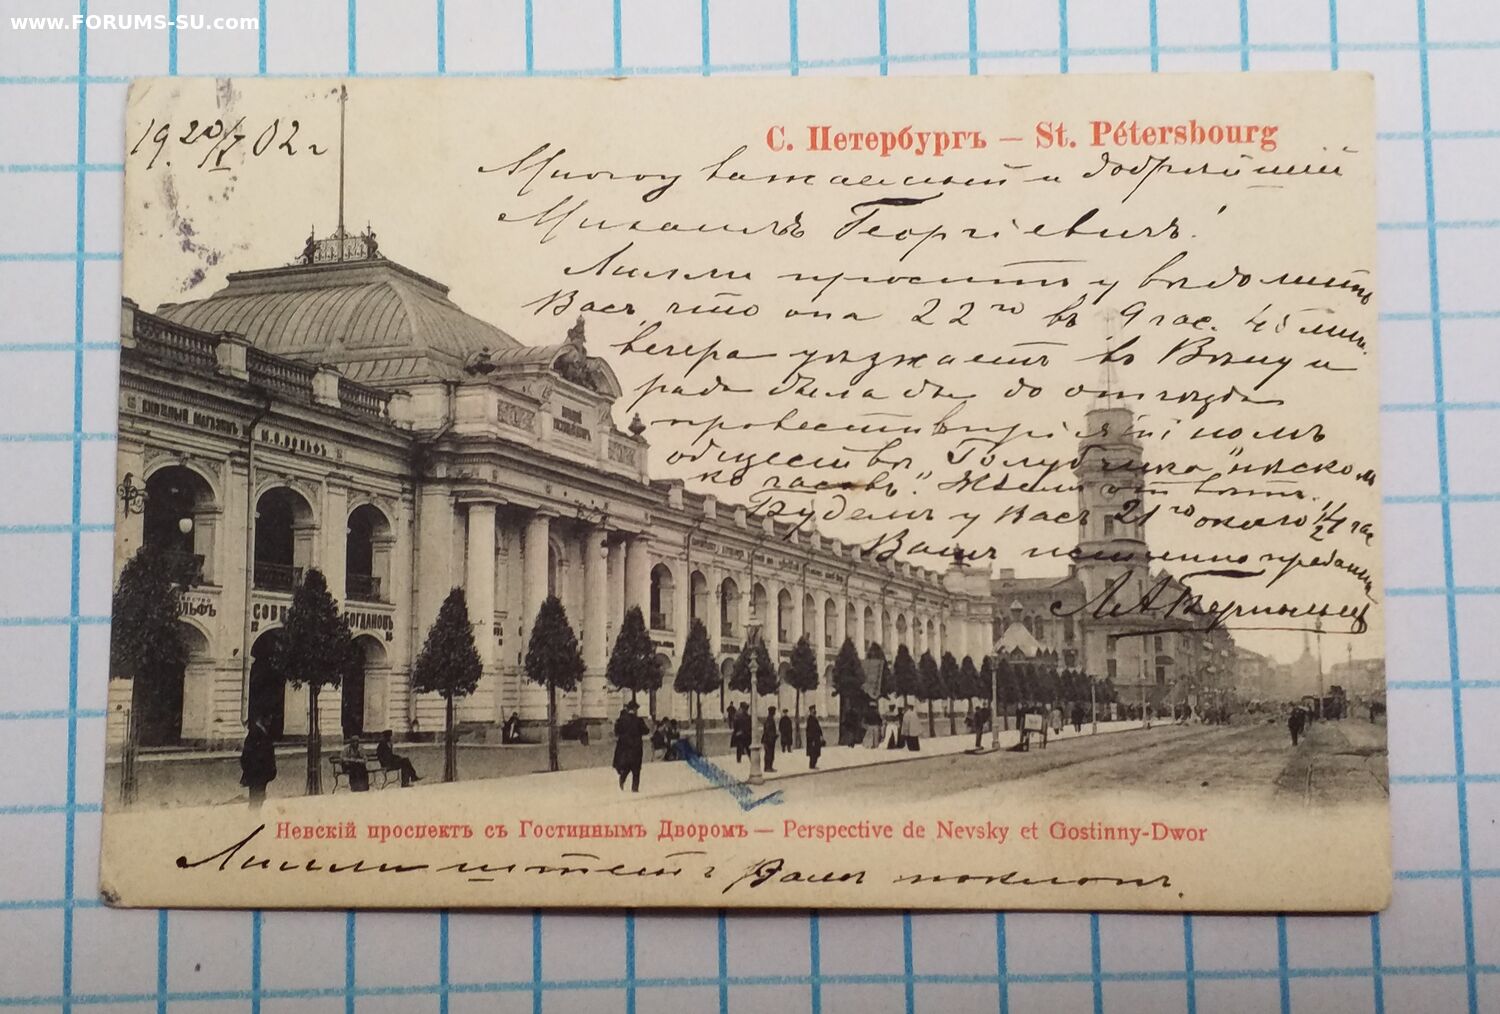 www.FORUMS-SU.com
19 20/V 02 г
С. Петербургъ — St. Pétersbourg
Многоуважаемый и добрѣйшій
Михаилъ Георгіевичъ!
проситъ увѣдомить
Васъ что она 22го въ 9 час. 45 мин.
вечера уѣзжаетъ въ Вѣну и
рада была бы до отъѣзда
провести въ пріятномъ
обществѣ "Голубчика" нѣсколь
ко часовъ".
Будемъ у Васъ 21го около
Вашъ истинно преданный
КНИЖНЫЙ МАГАЗИНЪ М.О.ВОЛЬФЪ
ЛЬФЪ
БОГДАНОВЪ
Невскій проспектъ съ Гостиннымъ Дворомъ — Perspective de Nevsky et Gostinny-Dwor
шлетъ Вамъ поклонъ.